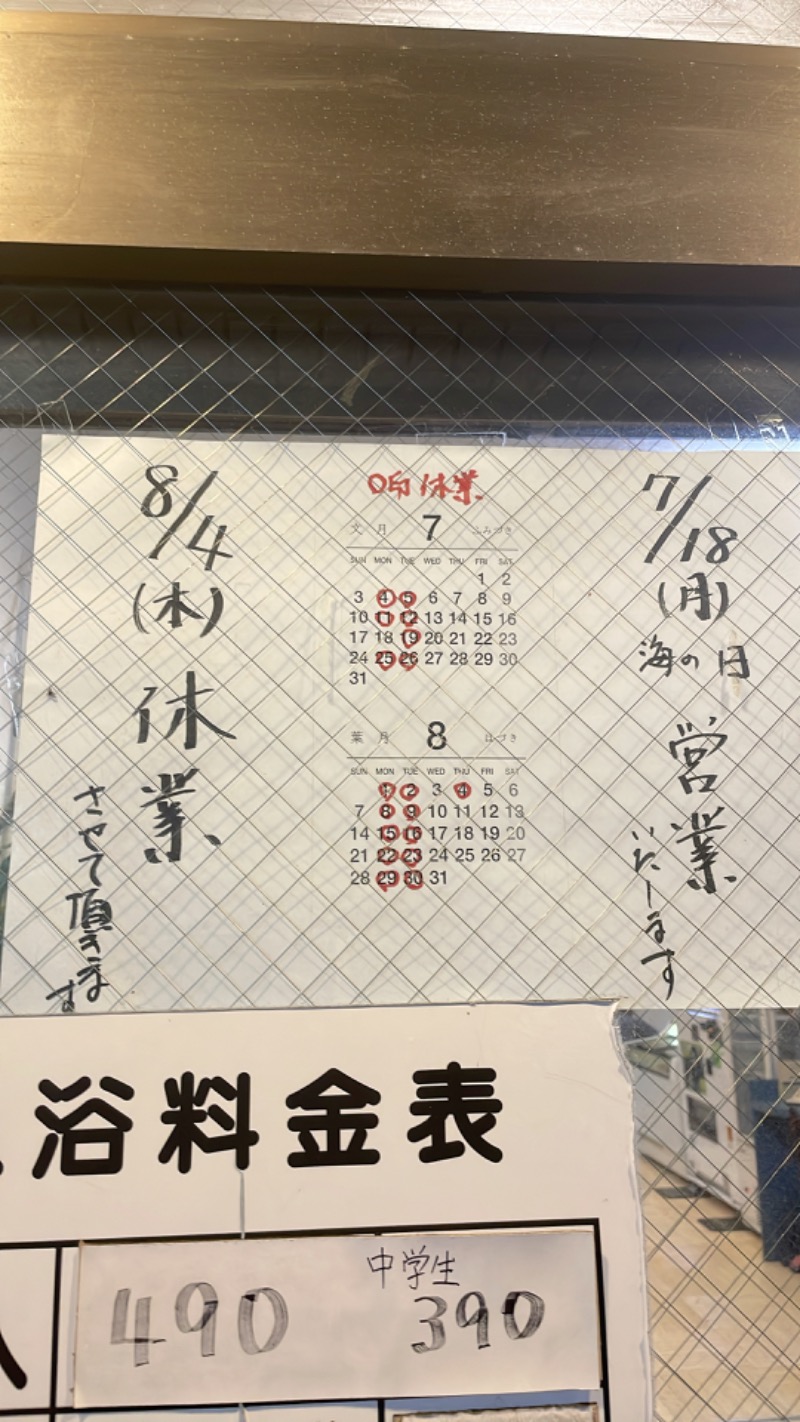 7/18
(月)
海の日
営業
いたします
〇印休業
文月 7 ふみづき
SUN MON TUE WED THU FRI SAT
1 2
3 4 5 6 7 8 9
10 11 12 13 14 15 16
17 18 19 20 21 22 23
24 25 26 27 28 29 30
31
葉月 8 はづき
SUN MON TUE WED THU FRI SAT
1 2 3 4 5 6
7 8 9 10 11 12 13
14 15 16 17 18 19 20
21 22 23 24 25 26 27
28 29 30 31
8/4
(木)
休業
させて頂きます
浴料金表
490
中学生
390